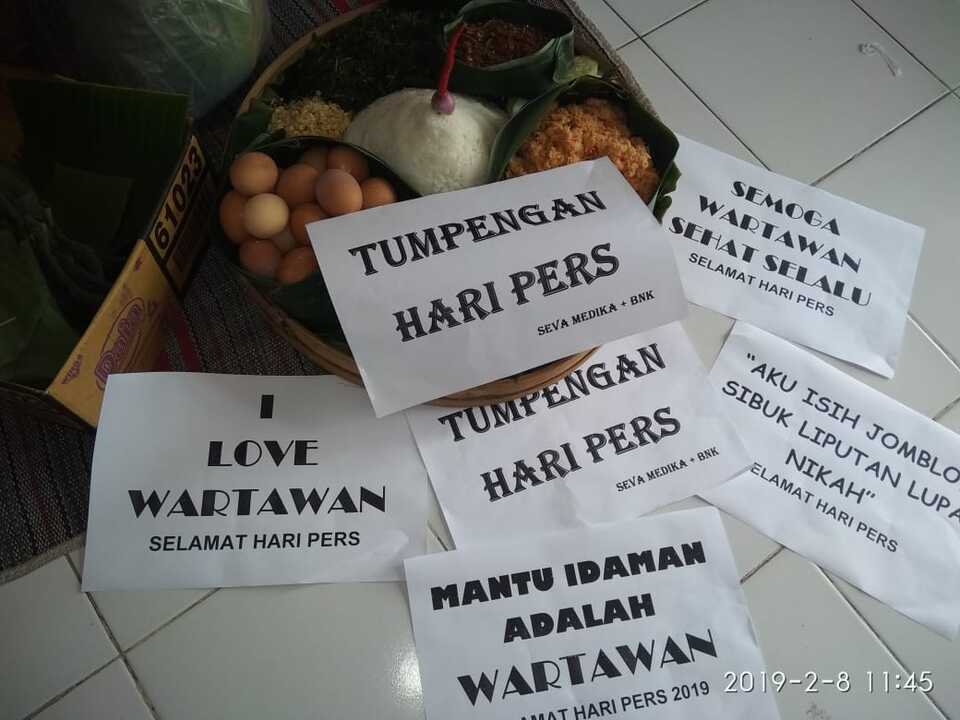 61023
TUMPENGAN
HARI PERS
SEVA MEDIKA + BNK
SEMOGA
WARTAWAN
SEHAT SELALU
SELAMAT HARI PERS
I
LOVE
WARTAWAN
SELAMAT HARI PERS
TUMPENGAN
HARI PERS
SEVA MEDIKA + BNK
"AKU ISIH JOMBLO
SIBUK LIPUTAN LUPA
NIKAH"
SELAMAT HARI PERS
MANTU IDAMAN
ADALAH
WARTAWAN
SELAMAT HARI PERS 2019
2019-2-8 11:45